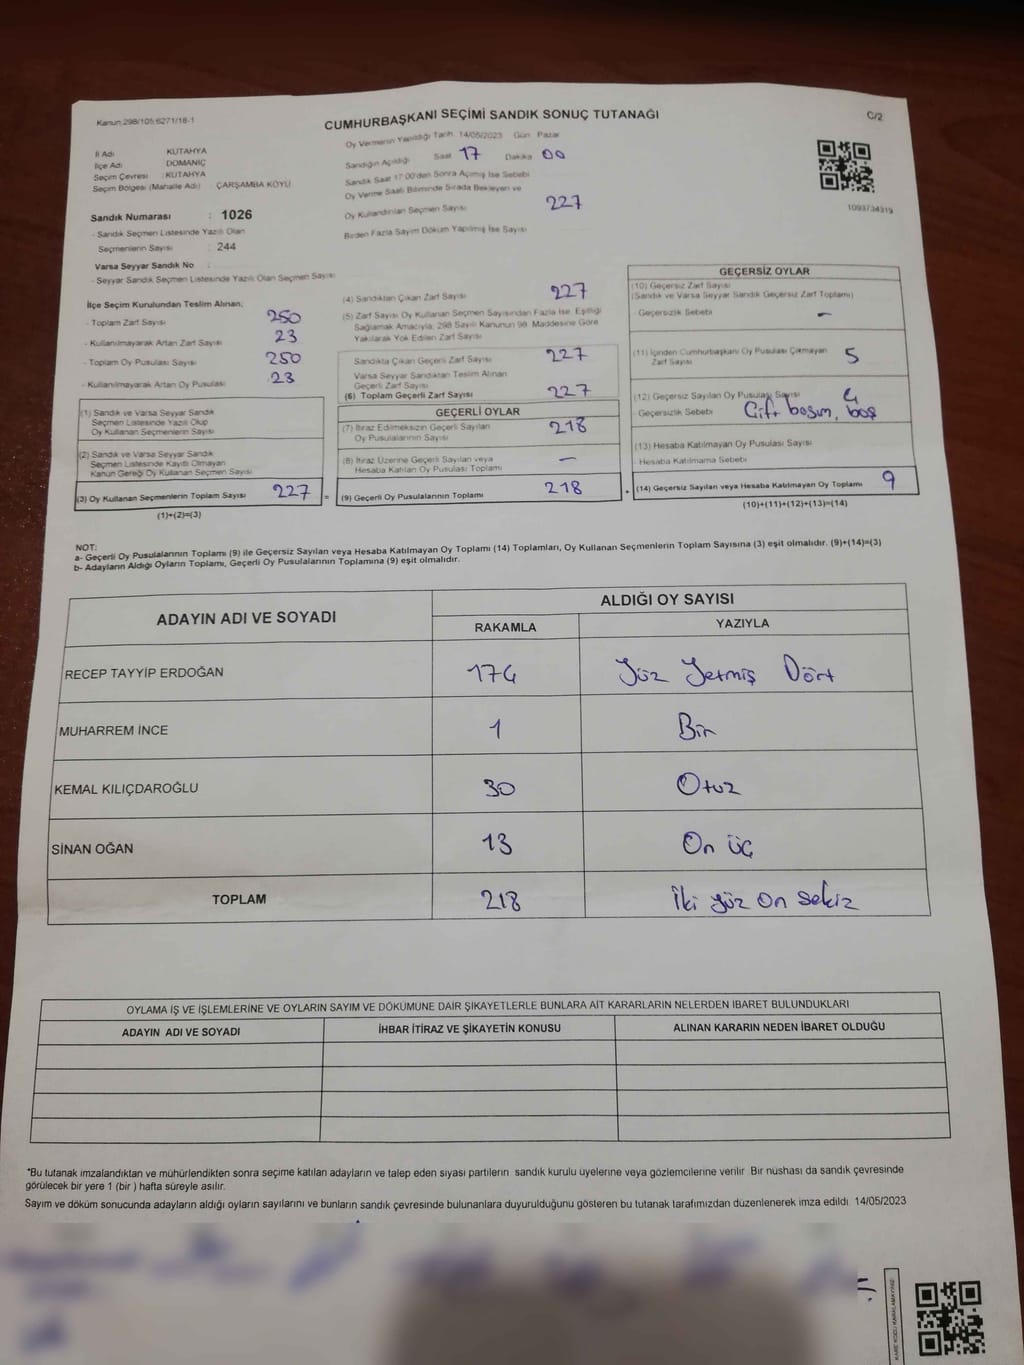 Kanun:298/105;6271/18-1
CUMHURBAŞKANI SEÇİMİ SANDIK SONUÇ TUTANAĞI
C/2
İl Adı : KÜTAHYA
İlçe Adı : DOMANİÇ
Seçim Çevresi : KÜTAHYA
Seçim Bölgesi (Mahalle Adı) : ÇARŞAMBA KÖYÜ
Sandık Numarası : 1026
- Sandık Seçmen Listesinde Yazılı Olan
Seçmenlerin Sayısı : 244
Varsa Seyyar Sandık No :
- Seyyar Sandık Seçmen Listesinde Yazılı Olan Seçmen Sayısı
Oy Vermenin Yapıldığı Tarih: 14/05/2023 Gün Pazar
Sandığın Açıldığı Saat 17 Dakika 00
Sandık Saat 17:00'den Sonra Açılmış İse Sebebi
Oy Verme Saati Bitiminde Sırada Bekleyen ve
Oy Kullandırılan Seçmen Sayısı 227
Birden Fazla Sayım Döküm Yapılmış İse Sayısı
1093734319
İlçe Seçim Kurulundan Teslim Alınan;
- Toplam Zarf Sayısı 250
- Kullanılmayarak Artan Zarf Sayısı 23
- Toplam Oy Pusulası Sayısı 250
- Kullanılmayarak Artan Oy Pusulası 23
(1) Sandık ve Varsa Seyyar Sandık
Seçmen Listesinde Yazılı Olup
Oy Kullanan Seçmenlerin Sayısı
(2) Sandık ve Varsa Seyyar Sandık
Seçmen Listesinde Kayıtlı Olmayan
Kanun Gereği Oy Kullanan Seçmen Sayısı
(3) Oy Kullanan Seçmenlerin Toplam Sayısı 227 =
(1)+(2)=(3)
(4) Sandıktan Çıkan Zarf Sayısı 227
(5) Zarf Sayısı Oy Kullanan Seçmen Sayısından Fazla İse, Eşitliği
Sağlamak Amacıyla; 298 Sayılı Kanunun 98. Maddesine Göre
Yakılarak Yok Edilen Zarf Sayısı
Sandıkta Çıkan Geçerli Zarf Sayısı 227
Varsa Seyyar Sandıktan Teslim Alınan
Geçerli Zarf Sayısı
(6) Toplam Geçerli Zarf Sayısı 227
GEÇERLİ OYLAR
(7) İtiraz Edilmeksizin Geçerli Sayılan
Oy Pusulalarının Sayısı 218
(8) İtiraz Üzerine Geçerli Sayılan veya
Hesaba Katılan Oy Pusulası Toplamı -
(9) Geçerli Oy Pusulalarının Toplamı 218 +
GEÇERSİZ OYLAR
(10) Geçersiz Zarf Sayısı
(Sandık ve Varsa Seyyar Sandık Geçersiz Zarf Toplamı)
- Geçersizlik Sebebi -
(11) İçinden Cumhurbaşkanı Oy Pusulası Çıkmayan
Zarf Sayısı 5
(12) Geçersiz Sayılan Oy Pusulası Sayısı 4
- Geçersizlik Sebebi Çift basım, boş
(13) Hesaba Katılmayan Oy Pusulası Sayısı
- Hesaba Katılmama Sebebi
(14) Geçersiz Sayılan veya Hesaba Katılmayan Oy Toplamı 9
(10)+(11)+(12)+(13)=(14)
NOT:
a- Geçerli Oy Pusulalarının Toplamı (9) ile Geçersiz Sayılan veya Hesaba Katılmayan Oy Toplamı (14) Toplamları, Oy Kullanan Seçmenlerin Toplam Sayısına (3) eşit olmalıdır. (9)+(14)=(3)
b- Adayların Aldığı Oyların Toplamı, Geçerli Oy Pusulalarının Toplamına (9) eşit olmalıdır.
ADAYIN ADI VE SOYADI
ALDIĞI OY SAYISI
RAKAMLA YAZIYLA
RECEP TAYYİP ERDOĞAN 174 Yüz Yetmiş Dört
MUHARREM İNCE 1 Bir
KEMAL KILIÇDAROĞLU 30 Otuz
SİNAN OĞAN 13 On üç
TOPLAM 218 İki yüz on sekiz
OYLAMA İŞ VE İŞLEMLERİNE VE OYLARIN SAYIM VE DÖKÜMÜNE DAİR ŞİKAYETLERLE BUNLARA AİT KARARLARIN NELERDEN İBARET BULUNDUKLARI
ADAYIN ADI VE SOYADI İHBAR İTİRAZ VE ŞİKAYETİN KONUSU ALINAN KARARIN NEDEN İBARET OLDUĞU
*Bu tutanak imzalandıktan ve mühürlendikten sonra seçime katılan adayların ve talep eden siyasi partilerin sandık kurulu üyelerine veya gözlemcilerine verilir. Bir nüshası da sandık çevresinde
görülecek bir yere 1 (bir) hafta süreyle asılır.
Sayım ve döküm sonucunda adayların aldığı oyların sayılarını ve bunların sandık çevresinde bulunanlara duyurulduğunu gösteren bu tutanak tarafımızdan düzenlenerek imza edildi. 14/05/2023
KARE KODU KARALAMAYINIZ!